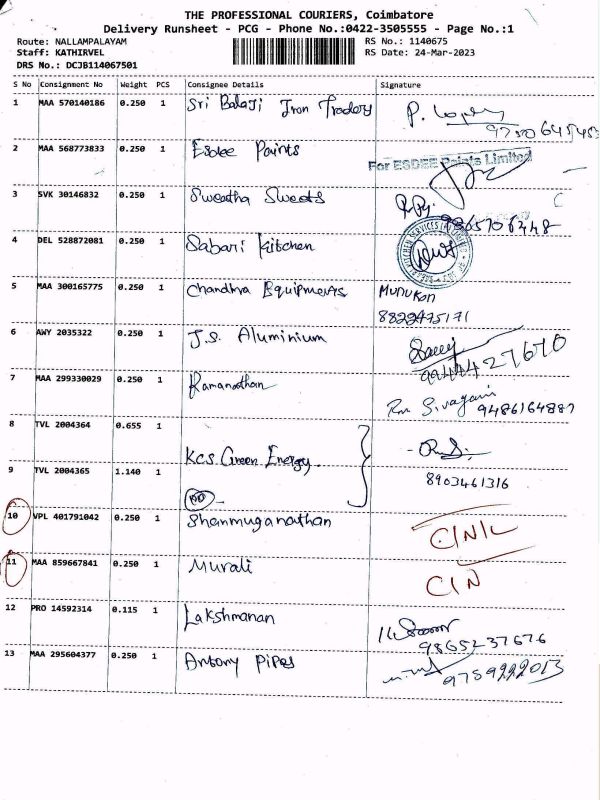 THE PROFESSIONAL COURIERS, Coimbatore
Delivery Runsheet - PCG - Phone No.:0422-3505555 - Page No.:1
Route: NALLAMPALAYAM
Staff: KATHIRVEL
DRS No.: DCJB114067501
RS No.: 1140675
RS Date: 24-Mar-2023
S No Consignment No Weight PCS Consignee Details Signature
1 MAA 570140186 0.250 1 Sri Balaji Iron Traders
2 MAA 568773833 0.250 1 Esdee Paints For ESDEE Paints Limited
3 SVK 30146832 0.250 1 Swetha Sweets
4 DEL 528872081 0.250 1 Sabari Kitchen
5 MAA 300165775 0.250 1 Chandra Equipments Murukan
8822475171
6 AWY 2035322 0.250 1 J.S. Aluminium
9944427670
7 MAA 299330029 0.250 1 Ramanathan Rm Sivagami 9486164887
8 TVL 2004364 0.655 1
Kcs Green Energy
9 TVL 2004365 1.140 1 8903461316
10 VPL 401791042 0.250 1 Shanmuganathan
11 MAA 859667841 0.250 1 Murali
12 PRO 14592314 0.115 1 Lakshmanan
9865237676
13 MAA 295604377 0.250 1 Antony Pipes
9789222013